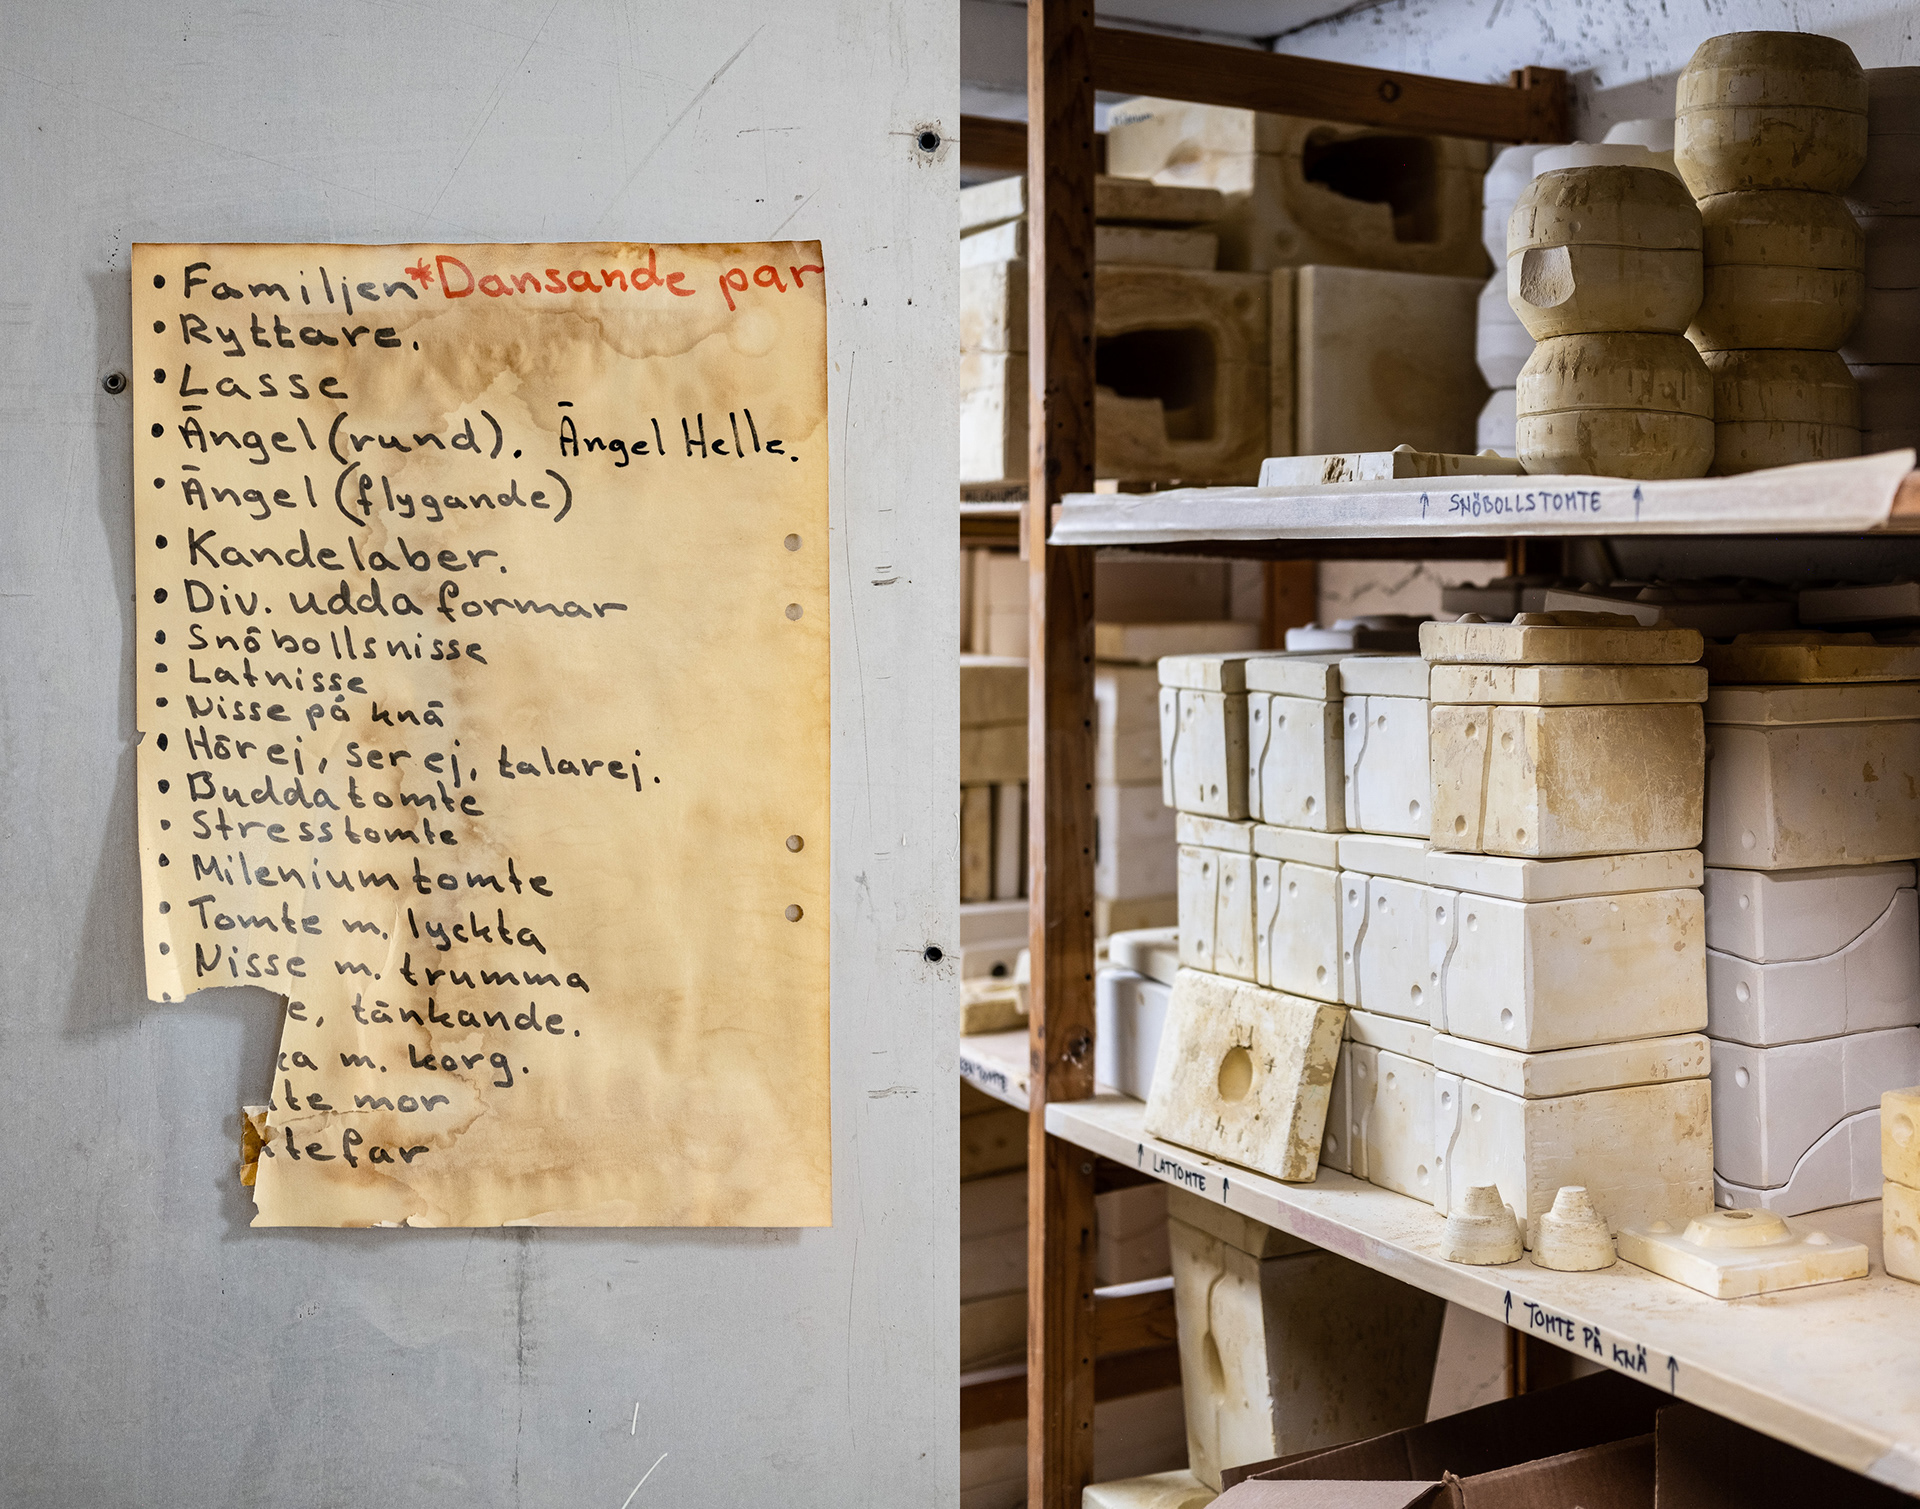 • Familjen *Dansande par
• Ryttare.
• Lasse
• Ängel (rund). Ängel Helle.
• Ängel (flygande)
• Kandelaber.
• Div. udda formar
• Snöbollsnisse
• Latnisse
• Nisse på knä
• Hör ej, ser ej, talar ej.
• Buddatomte
• Stresstomte
• Milenium tomte
• Tomte m. lyckta
• Nisse m. trumma
e, tänkande.
ka m. korg.
te mor
tefar
↑ SNÖBOLLSTOMTE ↑
↑ LATTOMTE ↑
↑ TOMTE PÅ KNÄ ↑